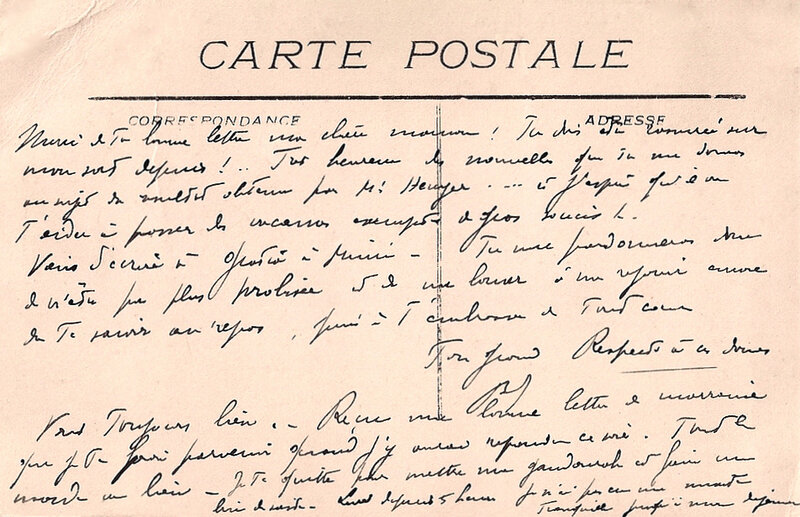 CARTE POSTALE
CORRESPONDANCE
ADRESSE
Merci de ta bonne lettre ma chère maman ! Tu dois être rassurée sur
mon sort depuis !.. Très heureux des nouvelles que tu me donnes
au sujet du résultat obtenu par Mr .... et j'espère qu'à
T'aider à passer des vacances exemptes de gros soucis !.
Viens d'écrire à à Mimi - Tu me pardonneras donc
de n'être pas plus prolixe et de me borner à me réjouir encore
de Te savoir au repos, puis à T'embrasser de Tout cœur
Ton grand Respects à ces dames
Vais Toujours bien. - Reçu une bonne lettre de marraine
que je Te ferai parvenir quand j'y aurai répondu ce soir. Tout le
monde va bien - Je Te quitte pour mettre ma et faire un
bin de - Levé depuis 5 heures je n'ai pas eu une minute
Tranquille